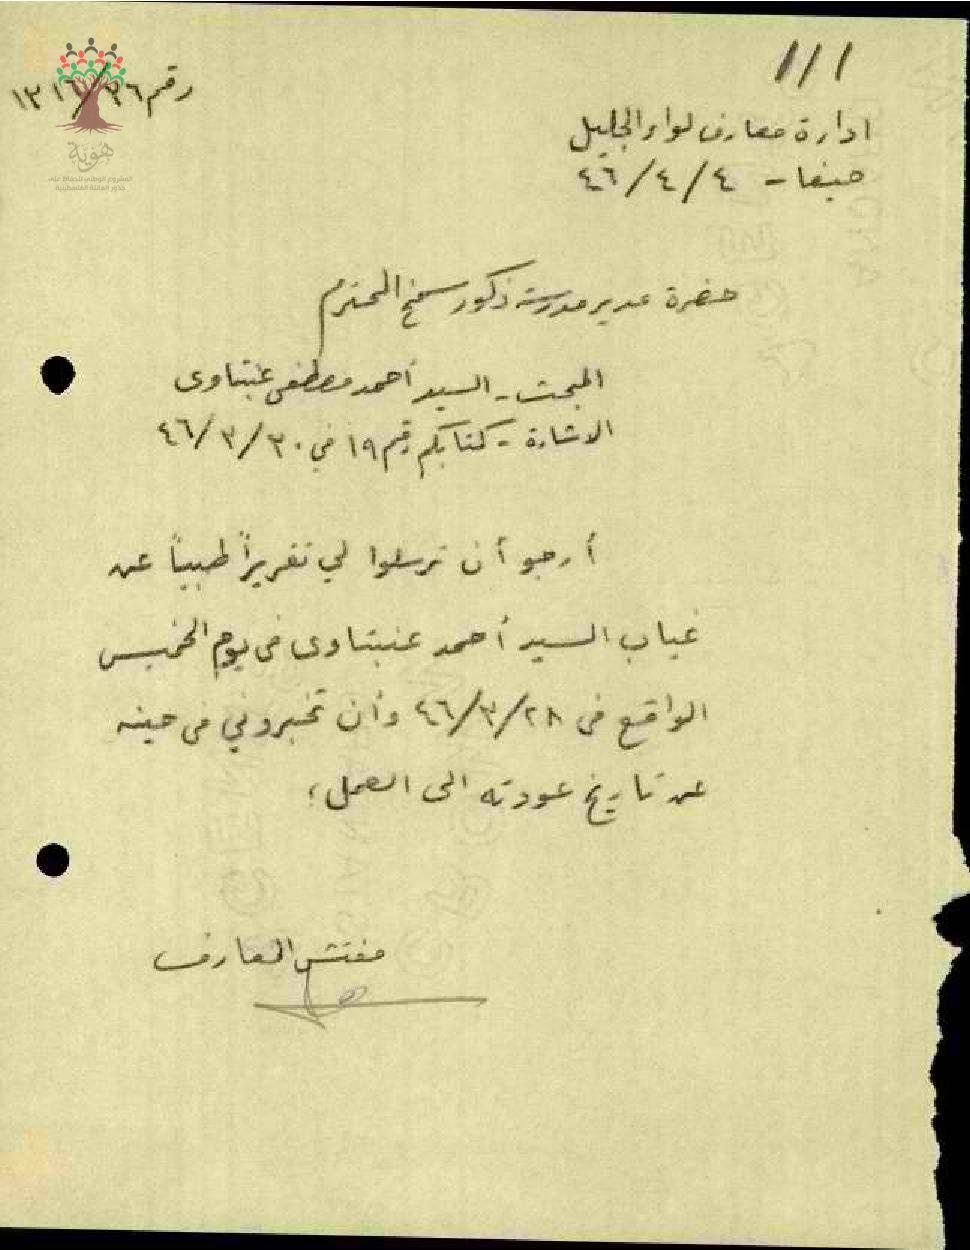 ١١١
رقم ٣٦/١٣١٦
هوية
المشروع الوطني للحفاظ على
جذور العائلة الفلسطينية
ادارة معارف لواء الجليل
حيفا - ٤/٤/٤٦
حضرة مدير مدرسة ذكور سخنين المحترم
المبحث - السيد أحمد مصطفى عنبتاوي
الاشارة - كتابكم رقم ١٩ في ٣٠/٣/٤٦
أرجو أن ترسلوا لي تقريراً طبياً عن
غياب السيد أحمد عنبتاوى في يوم الخميس
الواقع في ٢٨/٣/٤٦ وأن تخبروني في حينه
عن تاريخ عودته الى العمل،
مفتش المعارف